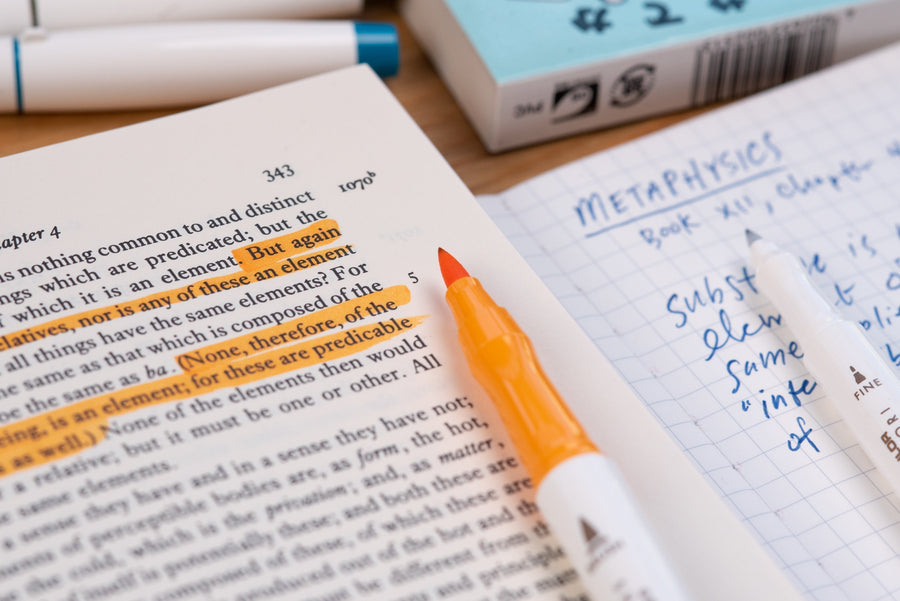 343
1070b
apter 4
is nothing common to and distinct
ngs which are predicated; but the
which it is an element. But again
elatives, nor is any of these an element
all things have the same elements? For
5
same as that which is composed of the
be the same as ba. (None, therefore, of the
eing, is an element; for these are predicable
as well.) None of the elements then would
a relative; but it must be one or other. All
same elements.
a sense they have and in a sense they have not;
of perceptible bodies are, as form, the hot,
the cold, which is the privation; and, as matter,
of itself is potentially these; and both these are
composed of these, of which these are
produced out of the hot and the
must be different from
and
# 2 #
PVC
METAPHYSICS
Book XII, Chapter
subst e is
elem t
same
"inte
of
FINE